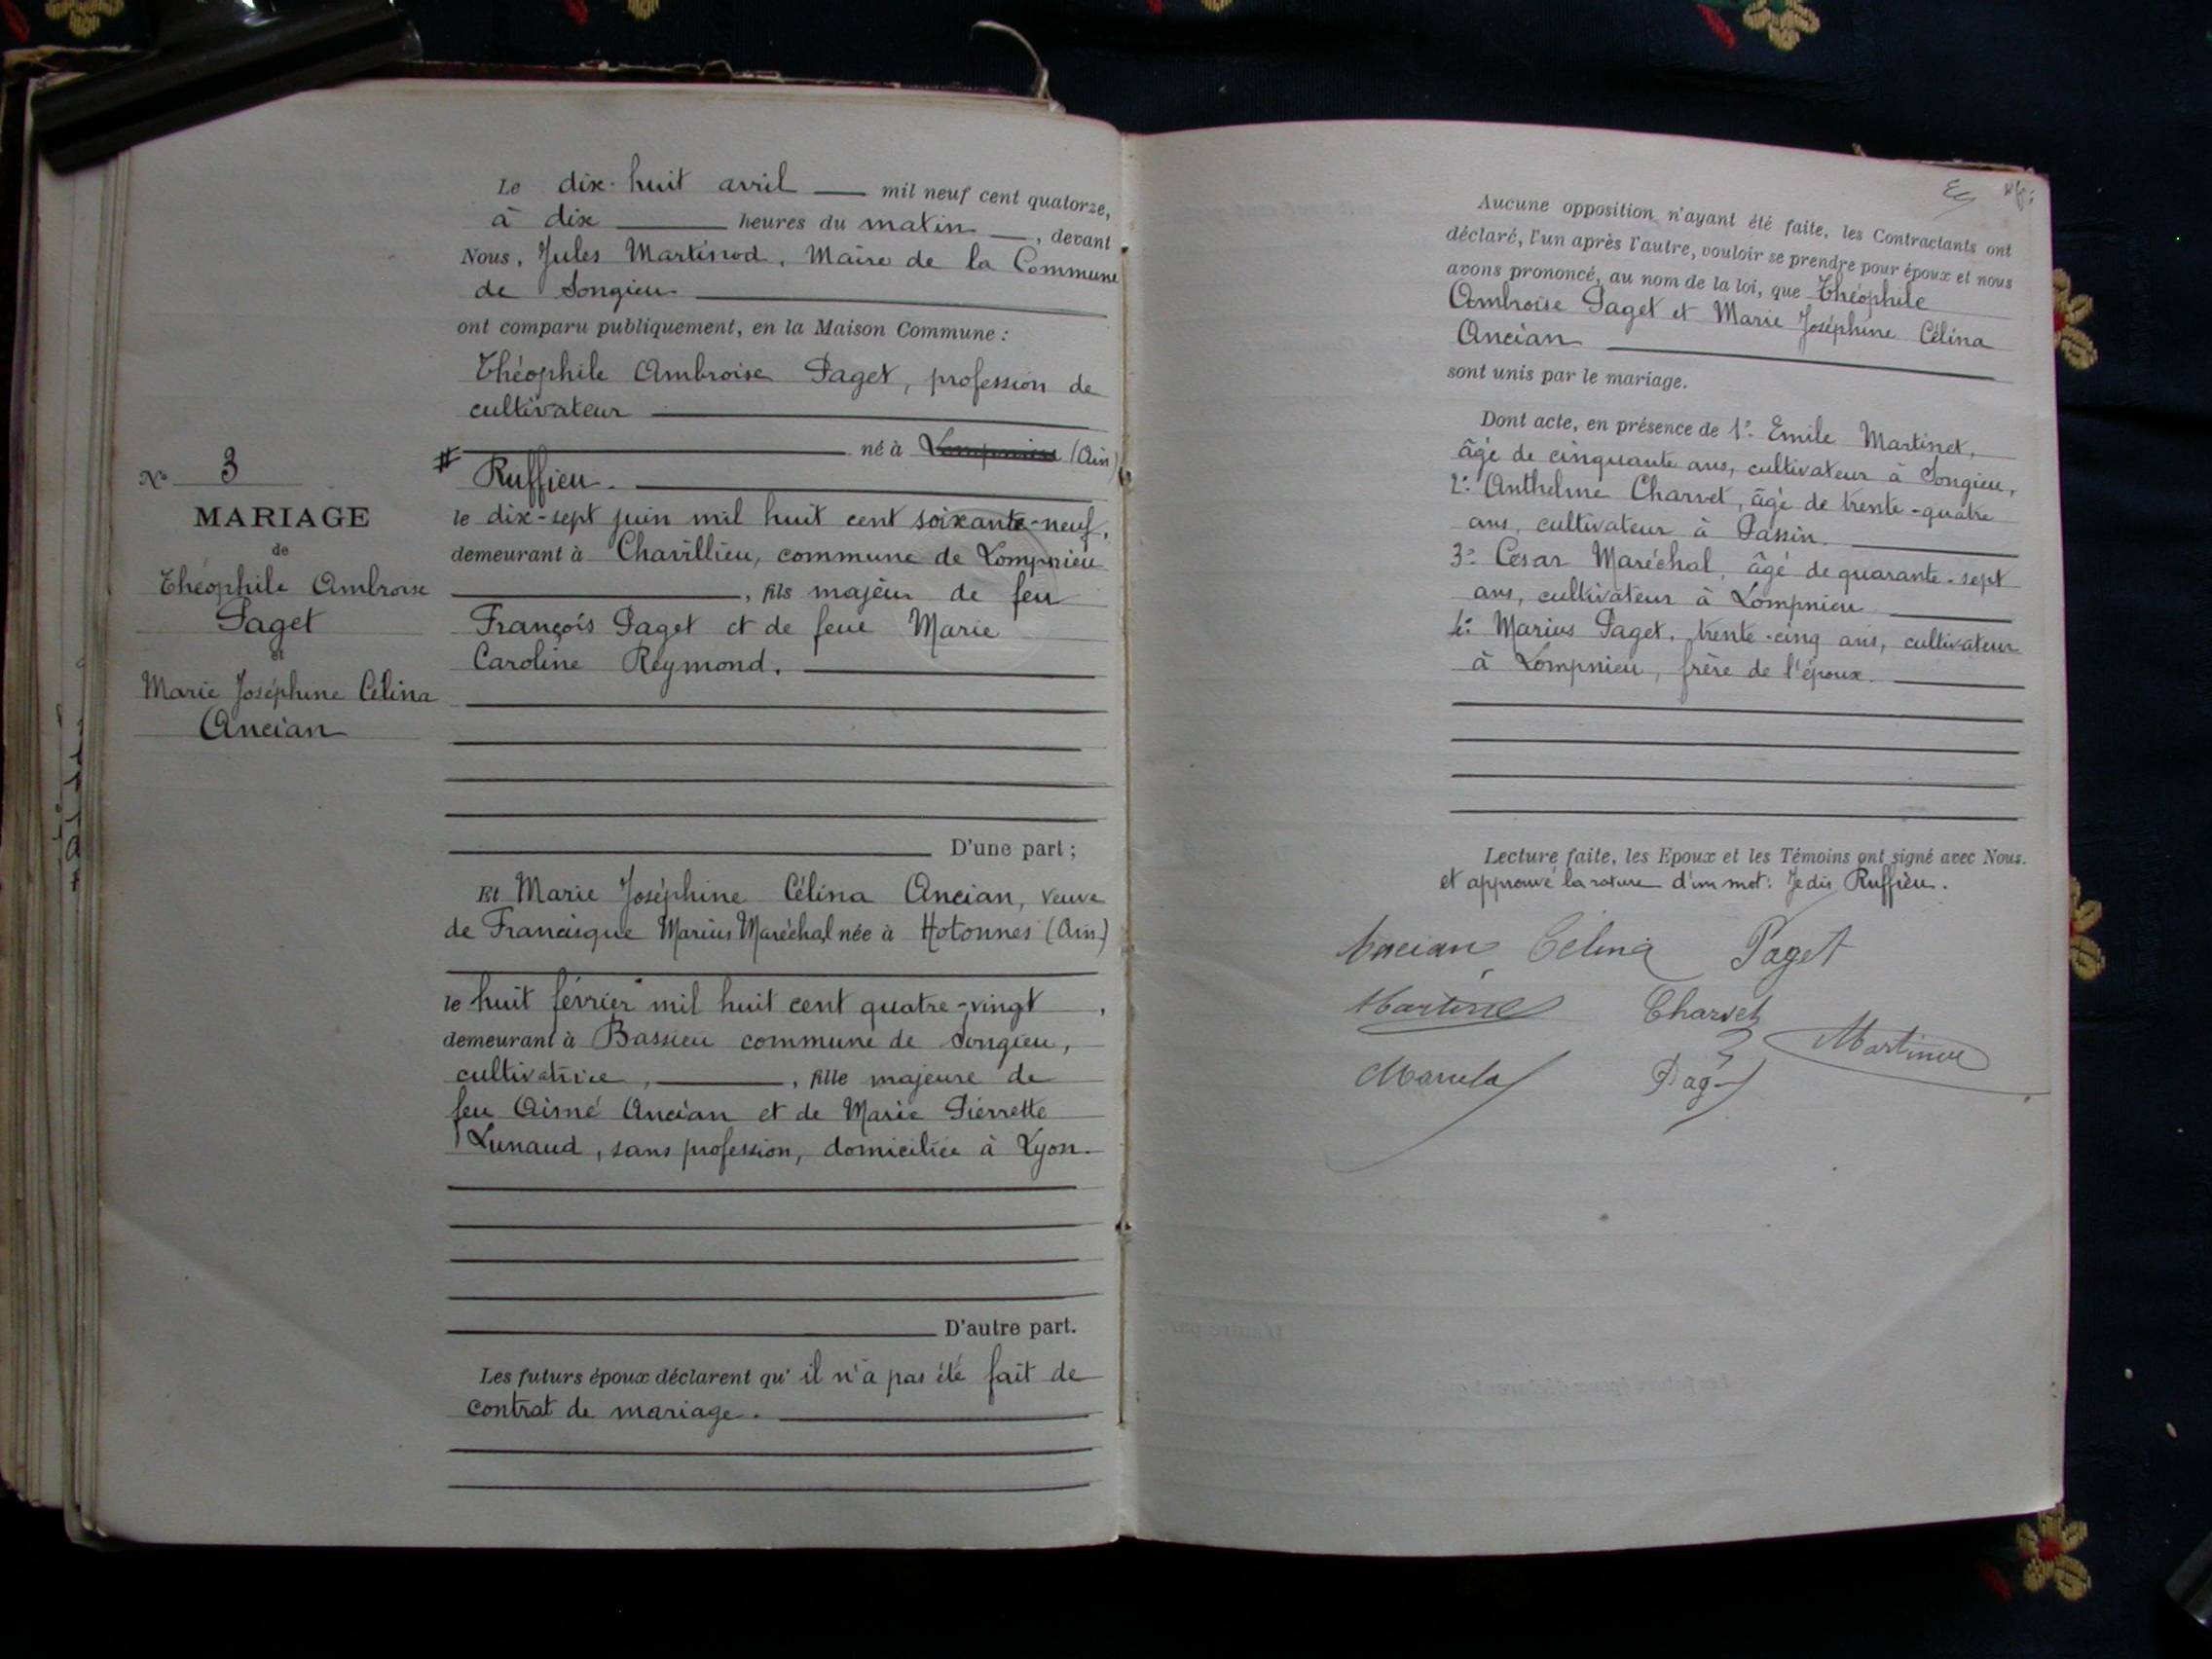 Le dix-huit avril mil neuf cent quatorze,
à dix heures du matin, devant
Nous, Jules Martinod, Maire de la Commune
de Songieu
ont comparu publiquement, en la Maison Commune :
Théophile Ambroise Paget, profession de
cultivateur
né à Lompnieu (Ain)
# Ruffieu.
le dix-sept juin mil huit cent soixante-neuf,
demeurant à Charillieu, commune de Lompnieu
, fils majeur de feu
François Paget et de feue Marie
Caroline Reymond.
D'une part ;
Et Marie Joséphine Célina Ancian, veuve
de Francisque Marius Maréchal née à Hotonnes (Ain)
le huit février mil huit cent quatre-vingt,
demeurant à Bassieu commune de Songieu,
cultivatrice, , fille majeure de
feu Aimé Ancian et de Marie Pierrette
Lunaud, sans profession, domiciliée à Lyon.
D'autre part.
Les futurs époux déclarent qu'il n'a pas été fait de
contrat de mariage.
No 3
MARIAGE
de
Théophile Ambroise
Paget
et
Marie Joséphine Célina
Ancian
Aucune opposition n'ayant été faite, les Contractants ont
déclaré, l'un après l'autre, vouloir se prendre pour époux et nous
avons prononcé, au nom de la loi, que Théophile
Ambroise Paget et Marie Joséphine Célina
Ancian
sont unis par le mariage.
Dont acte, en présence de 1º Emile Martinet,
âgé de cinquante ans, cultivateur à Songieu,
2º Anthelme Charvet, âgé de trente-quatre
ans, cultivateur à Passin.
3º César Maréchal, âgé de quarante-sept
ans, cultivateur à Lompnieu
4º Marius Paget, trente-cinq ans, cultivateur
à Lompnieu, frère de l'époux.
Lecture faite, les Epoux et les Témoins ont signé avec Nous.
et approuvé la rature d'un mot. Je dis Ruffieu.
Ancian Célina Paget
Martinet Charvet
Martinod
Paget